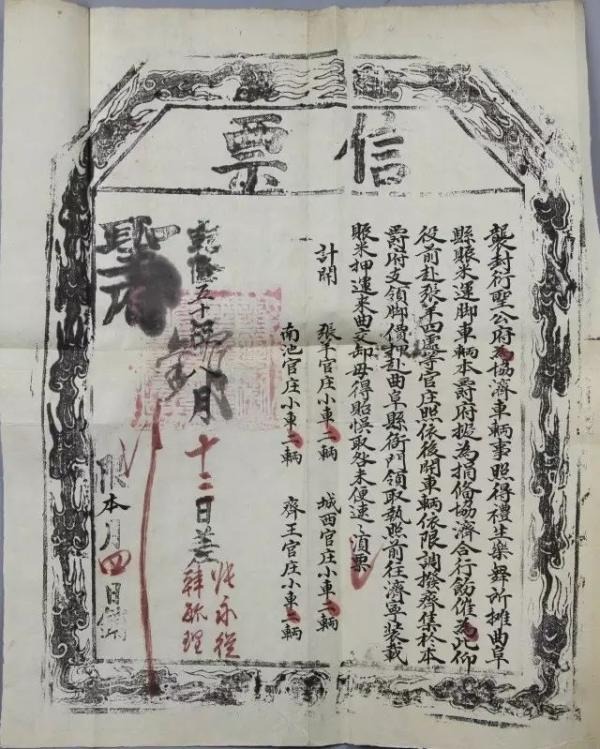 信票
襲封衍聖公府為協濟車輛事照得禮生樂舞所攤曲阜
縣賑米運脚車輛本爵府擬為捐備協濟合行飭催為此仰
役前赴張羊四處等官庄照依後開車輛依限調撥齊集於本
爵府支領脚價押赴曲阜縣衙門領取執照前往濟寧裝載
賑米押運來曲交卸毋得貽悞取咎未便速速須票
計開
張羊官庄小車二輛 城西官庄小車二輛
南池官庄小車二輛 齊王官庄小車二輛
乾隆五十 八月十二日差
張永從
韓 理
限本月 四日銷